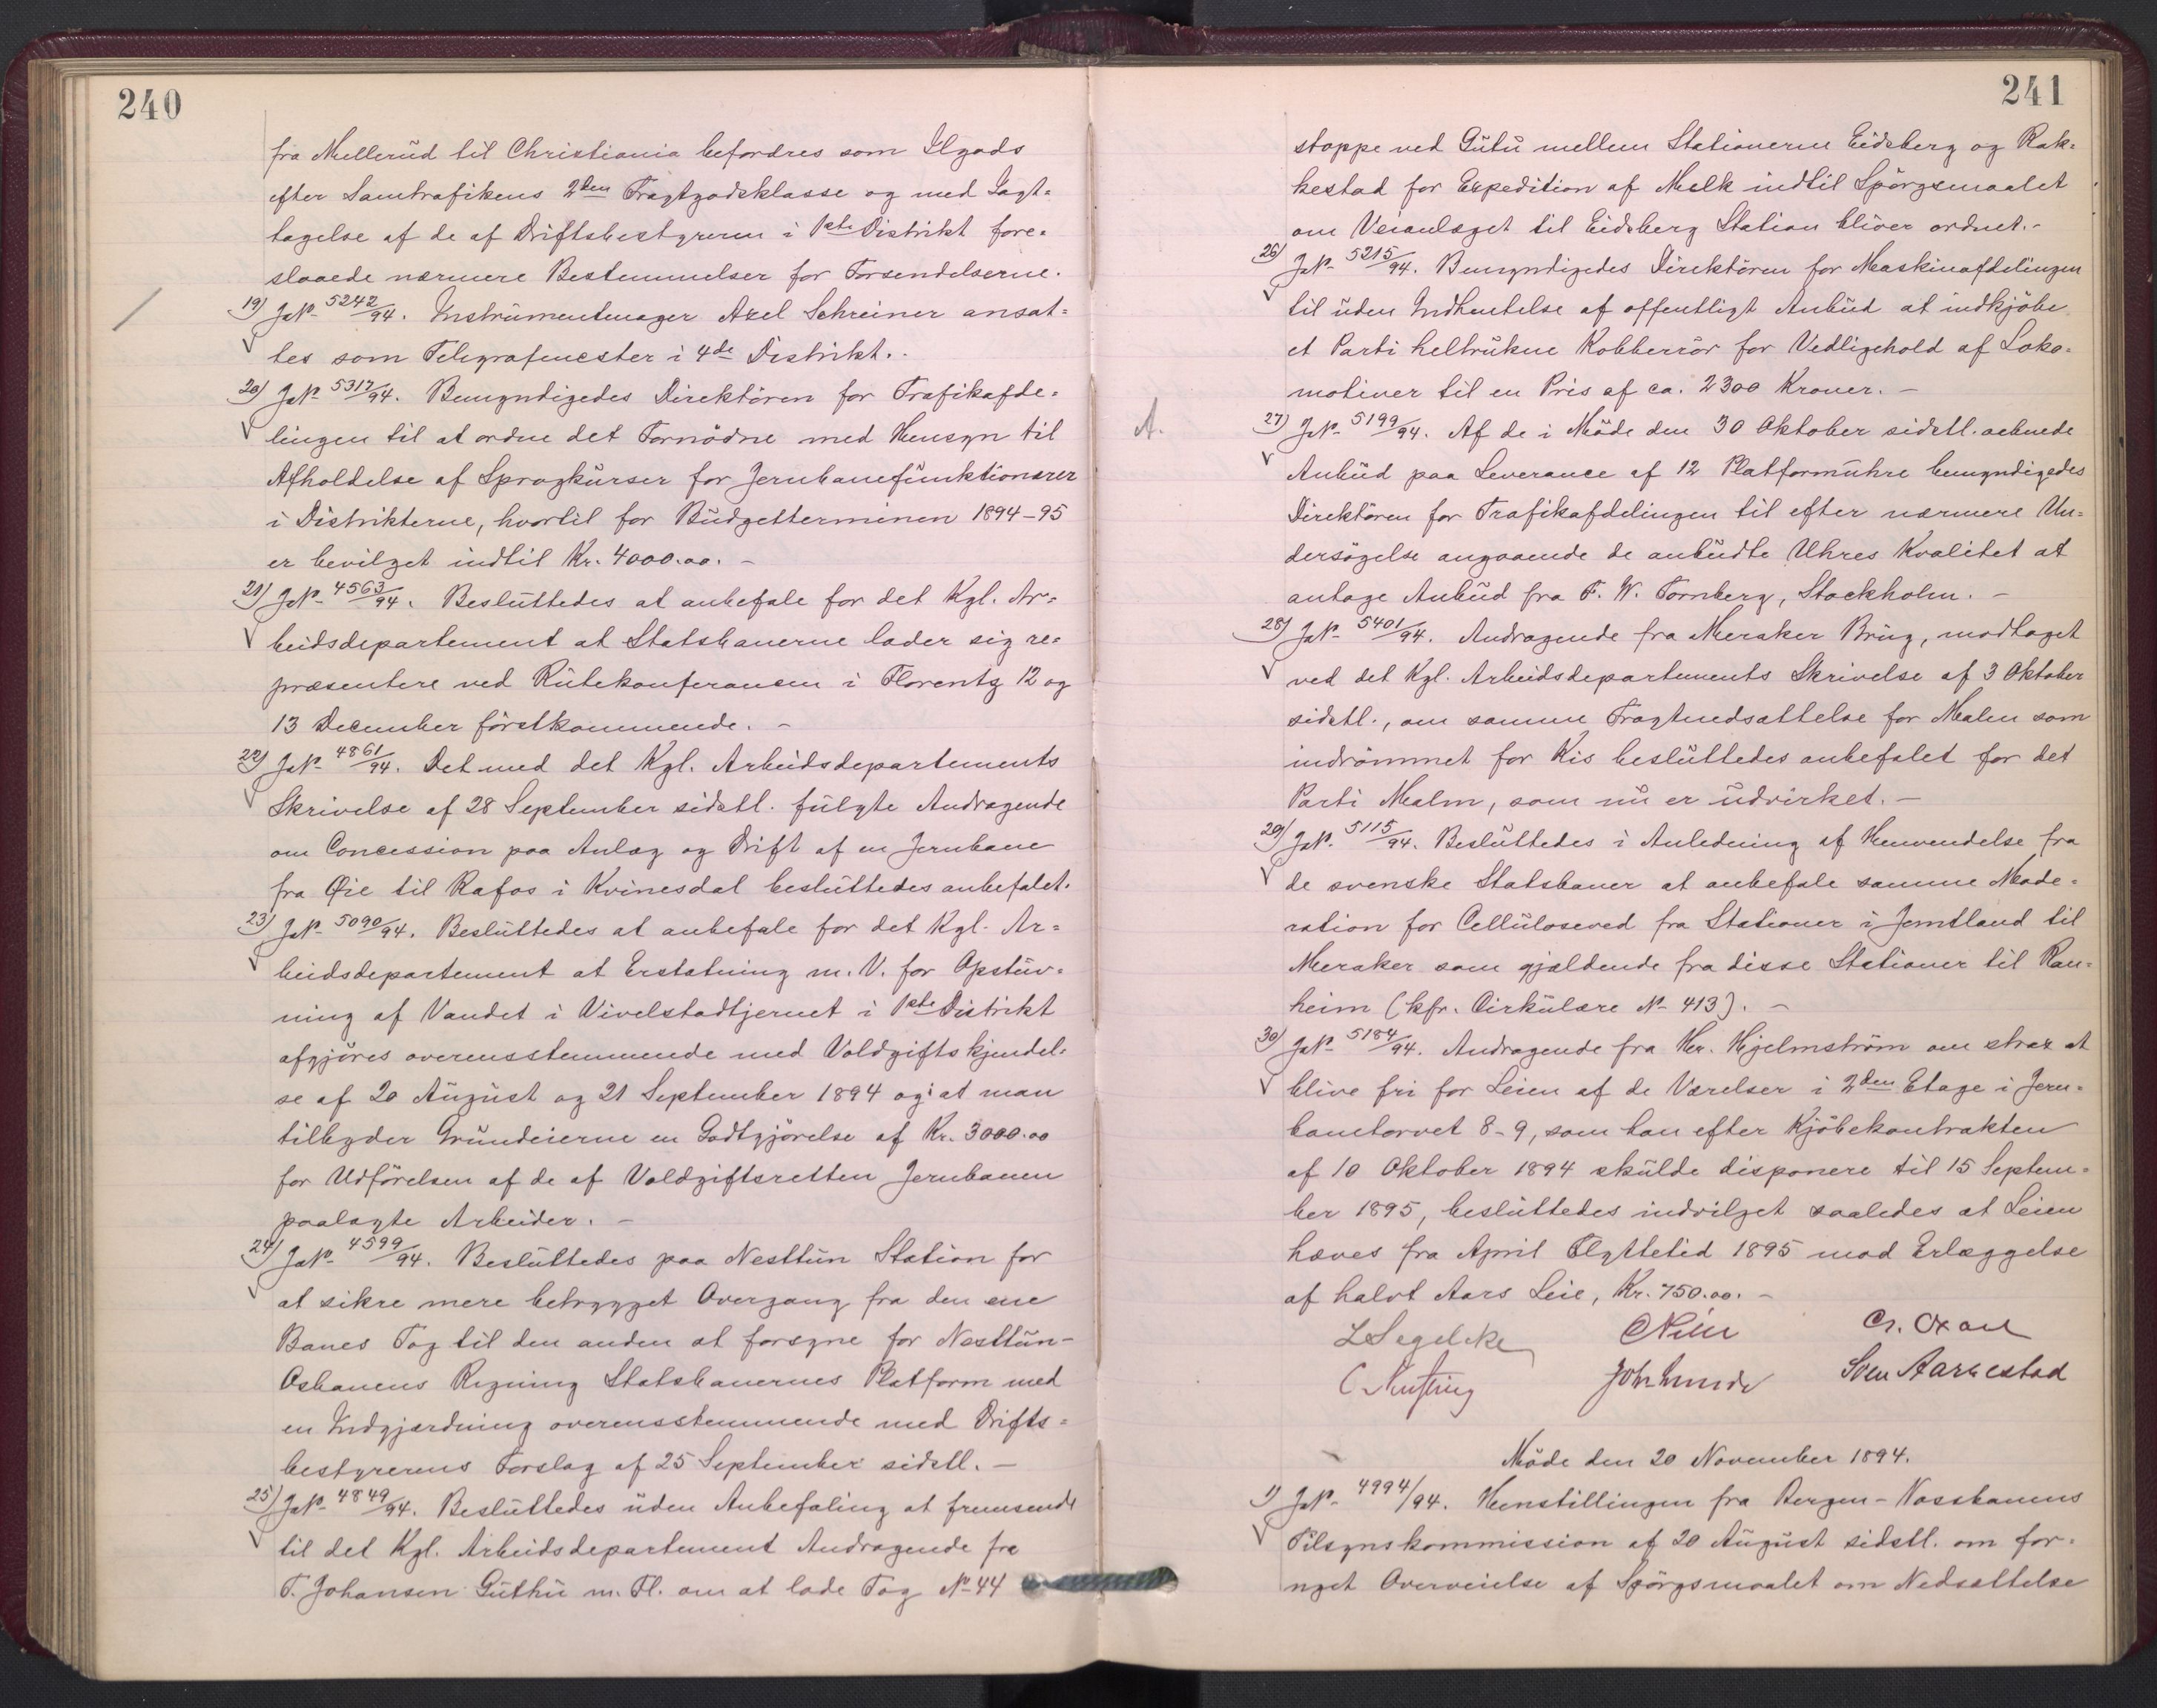 240
fra Mellerud til Christiania befordres som Ilgods
efter Samtrafikens 2den Fragtgodsklasse og med Iagt-
tagelse af de af Driftsbestyreren i 1ste Distrikt fore-
slaaede nærmere Bestemmelser for Forsendelserne.
19) J.N. 5242/94. Instrumentmager Axel Schreiner ansat-
tes som Telegrafmester i 4de Distrikt.
20) J.N. 5317/94. Bemyndigedes Direktören for Trafikafde-
lingen til at ordne det Fornödne med Hensyn til
Afholdelse af Sprogkurser for Jernbanefunktionærer
i Distrikterne, hvortil for Budgetterminen 1894-95
er bevilget indtil Kr. 4000.00. -
21) J.N. 4563/94. Besluttedes at anbefale for det Kgl. Ar-
beidsdepartement at Statsbanerne lader sig re-
præsentere ved Rutekonferancen i Florentz 12 og
13 December förstkommende. -
22) J.N. 4861/94. Det med det Kgl. Arbeidsdepartements
Skrivelse af 28 September sidstl. fulgte Andragende
om Concession paa Anlæg og Drift af en Jernbane
fra Øie til Rafos i Kvinesdal besluttedes anbefalet.
23) J.N. 5090/94. Besluttedes at anbefale for det Kgl. Ar-
beidsdepartement at Erstatning m. V. for Opstuv-
ning af Vandet i Vivelstadtjernet i 1ste Distrikt
afgjöres overensstemmende med Voldgiftskjendel-
se af 20 August og 21 September 1894 og at man
tilbyder Grundeierne en Godtgjörelse af Kr. 3000.00
for Udförelsen af de af Voldgiftsretten Jernbanen
paalagte Arbeider. -
24) J.N. 4599/94. Besluttedes paa Nesttun Station for
at sikre mere betrygget Overgang fra den ene
Banes Tog til den anden at forsyne for Nesttun-
Osbanens Regning Statsbanernes Platform med
en Indgjærdning overensstemmende med Drifts-
bestyrerens Forslag af 25 September sidstl. -
25) J.N. 4849/94. Besluttedes uden Anbefaling at fremsende
til det Kgl. Arbeidsdepartement Andragende fra
T. Johansen Guthu m. Fl. om at lade Tog No 44
241
stoppe ved Gutu mellem Stationerne Eidsberg og Rak-
kestad for Expedition af Melk indtil Spörgsmaalet
om Veianlæget til Eidsberg Station bliver ordnet. -
26) J.N. 5215/94. Bemyndigedes Direktören for Maskinafdelingen
til uden Indhentelse af offentligt Anbud at indkjöbe
et Parti heltrukne Kobberrör for Vedligehold af Loko-
motiver til en Pris af ca. 2300 Kroner. -
A.
27) J.N. 5199/94. Af de i Möde den 30 Oktober sidstl. aabnede
Anbud paa Leverance af 12 Platformuhre bemyndigedes
Direktören for Trafikafdelingen til efter nærmere Un-
dersögelse angaaende de anbudte Uhres Kvalitet at
antage Anbud fra F. W. Tornberg, Stockholm. -
28) J.N. 5401/94. Andragende fra Meraker Brug, modtaget
ved det Kgl. Arbeidsdepartements Skrivelse af 3 Oktober
sidstl., om samme Fragtnedsættelse for Malm som
indrömmet for Kis besluttedes anbefalet for det
Parti Malm, som nu er udvirket. -
29) J.N. 5115/94. Besluttedes i Anledning af Henvendelse fra
de svenske Statsbaner at anbefale samme Mode-
ration for Celluloseved fra Stationer i Jemtland til
Meraker som gjældende fra disse Stationer til Ran-
heim (kfr. Cirkulære No 413). -
30) J.N. 5184/94. Andragende fra Hr. Hjelmström om strax at
blive fri for Leien af de Værelser i 2den Etage i Jern-
banetorvet 8-9, som han efter Kjöbekontrakten
af 10 Oktober 1894 skulde disponere til 15 Septem-
ber 1895, besluttedes indvilget saaledes at Leien
hæves fra April Flyttetid 1895 mod Erlæggelse
af halvt Aars Leie, Kr. 750.00. -
L Segelcke
Sven Aarrestad
Möde den 20 November 1894.
1) J.N. 4994/94. Henstillingen fra Bergen-Vossbanens
Tilsynskommission af 20 August sidstl. om for-
nyet Overveielse af Spörgsmaalet om Nedsættelse